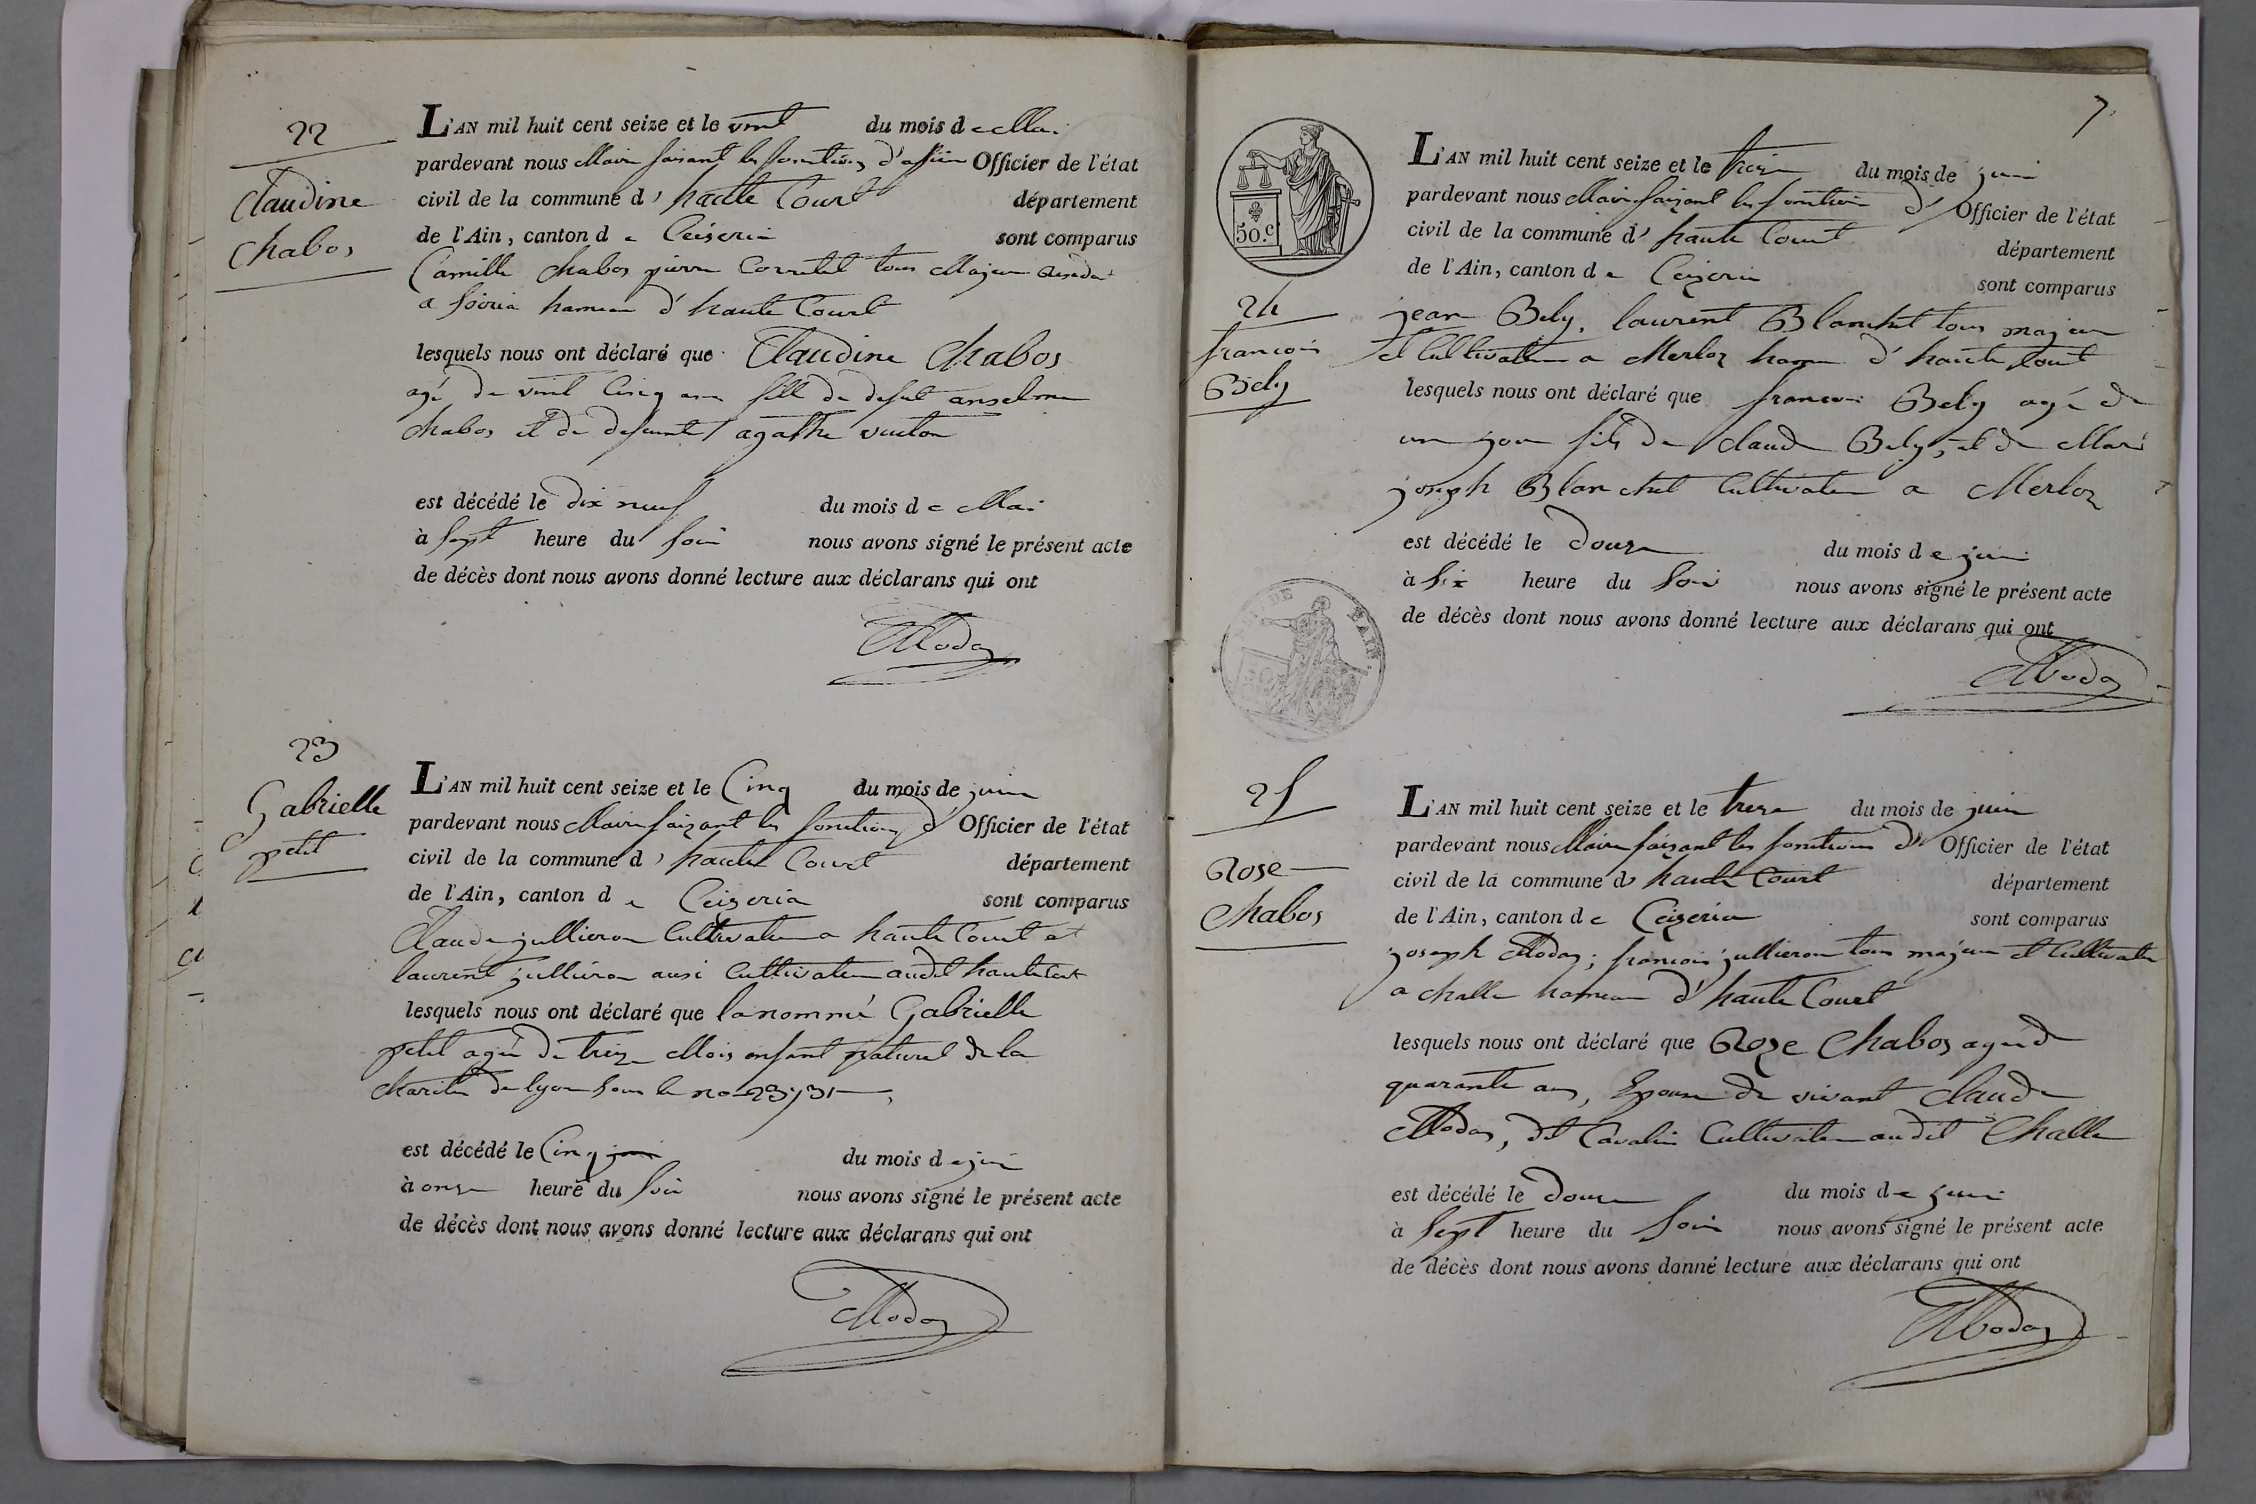 22
Claudine
Chabos
L'AN mil huit cent seize et le vint du mois de Mai
pardevant nous Maire faisant les fonctions d' Officier de l'état
civil de la commune d' haute Court département
de l'Ain, canton de Ceiseria sont comparus
Camille Chabos pierre tous Majeur
a hameau d'haute Court
lesquels nous ont déclaré que Claudine Chabos
agé de vint Cinq ans fille de defut anselme
Chabos et de defunte agathe
est décédé le dix neuf du mois de Mai
à Sept heure du Soir nous avons signé le présent acte
de décès dont nous avons donné lecture aux déclarans qui ont
Modas
23
Gabrielle
petit
L'AN mil huit cent seize et le Cinq du mois de juin
pardevant nous Maire faizant les fonctions d' Officier de l'état
civil de la commune d' haute Court département
de l'Ain, canton de Ceizeria sont comparus
Claude jullieron Cultivateur a haute Court et
laurent jullieron ausi Cultivateur audit hautecourt
lesquels nous ont déclaré que la nommé Gabrielle
petit agée de treize Mois enfant naturel de la
charité de lyon sous le no 23731
est décédé le Cinq juin du mois de juin
à onze heure du Soir nous avons signé le présent acte
de décès dont nous avons donné lecture aux déclarans qui ont
Modas
7.
50.c
24
francois
Bely
L'AN mil huit cent seize et le treize du mois de juin
pardevant nous Maire faizant les fonction d' Officier de l'état
civil de la commune d' haute Court département
de l'Ain, canton de Ceizeria sont comparus
jean Bely, laurent Blanchet tous majeur
et Cultivateur a Merloz hameau d'haute Court
lesquels nous ont déclaré que francois Bely agé de
un jour fils de claude Bely, et de Marie
joseph Blanchet Cultivateur a Merloz
est décédé le douze du mois de juin
à Six heure du Soir nous avons signé le présent acte
de décès dont nous avons donné lecture aux déclarans qui ont
Modas
25
Rose
Chabos
L'AN mil huit cent seize et le treze du mois de juin
pardevant nous Maire faizant les fonctions d' Officier de l'état
civil de la commune d' haute Court département
de l'Ain, canton de Ceizeria sont comparus
joseph Modas; francois jullieron tous majeur et Cultivateur
a challe hameau d'haute Court
lesquels nous ont déclaré que Roze Chabos agé de
quarante ans, Epouse de vivant claude
Modas, dit Cavalier Cultivateur audit Challe
est décédé le douze du mois de juin
à Sept heure du Soir nous avons signé le présent acte
de décès dont nous avons donné lecture aux déclarans qui ont
Modas